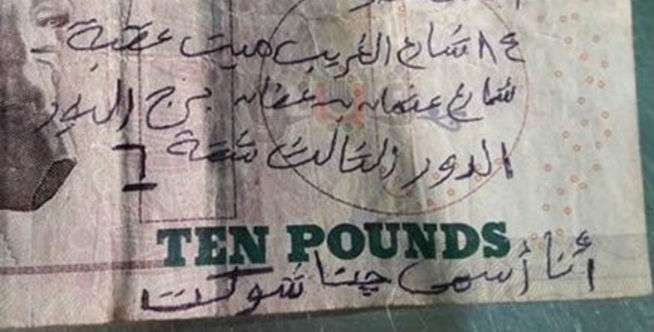 ٤٨ شارع الغريب ميت عقبة -
شارع عثمان بن عفان برج النور
الدور الثالث شقة ٦
TEN POUNDS
أنا أسمى شوكت